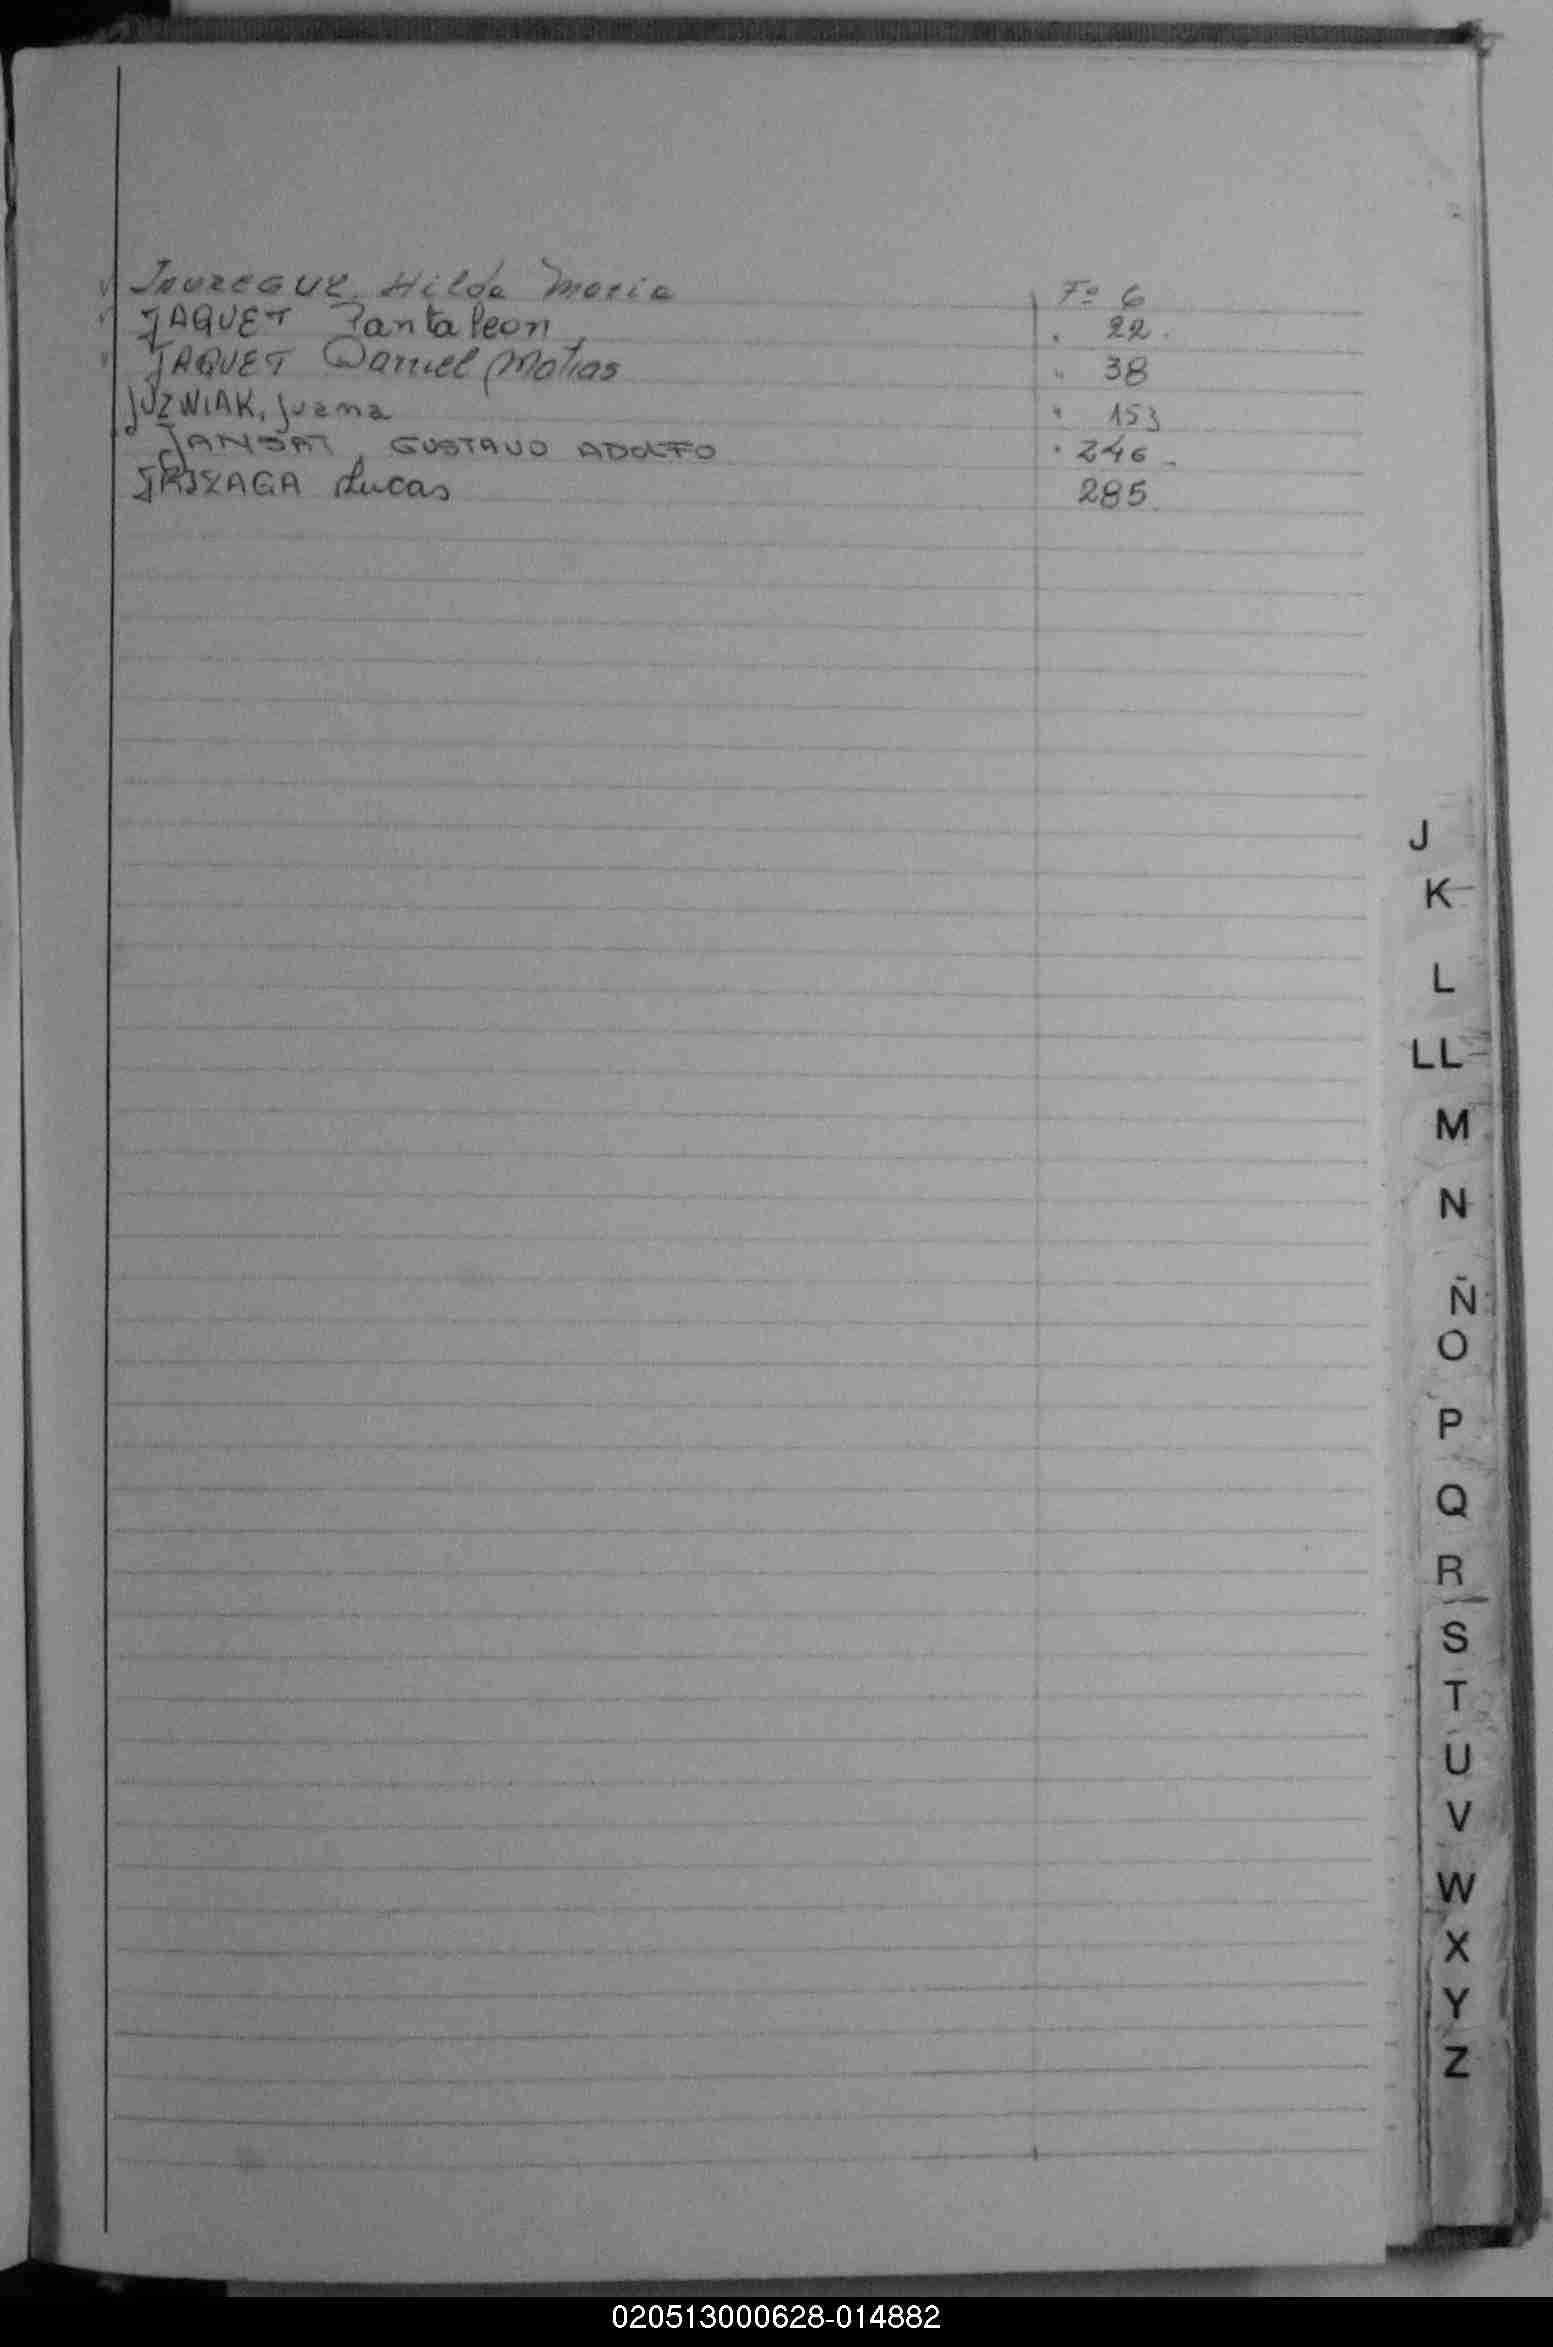 JAUREGUI, Hilda Maria Fº 6
JAQUET Pantaleon " 22.
JAQUET Daniel Matias " 38
JUZWIAK, Juana " 153
JANSAT, GUSTAVO ADOLFO " 246 -
Lucas 285.
J
K
L
LL
M
N
Ñ
O
P
Q
R
S
T
U
V
W
X
Y
Z
020513000628-014882